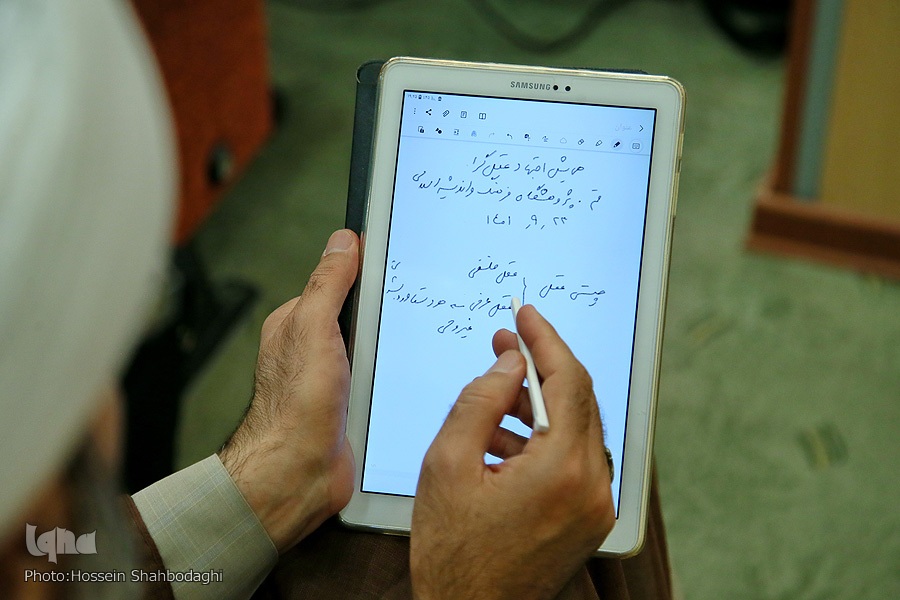 SAMSUNG
همایش اجتهاد عقل‌گرا
قم. پژوهشگاه فرهنگ و اندیشه اسلامی
۱۴۰۱ ,۹ ,۲۲
چیستی عقل
عقل فلسفی
عقل عرفی
غیر وحی
iqna
Photo:Hossein Shahbodaghi